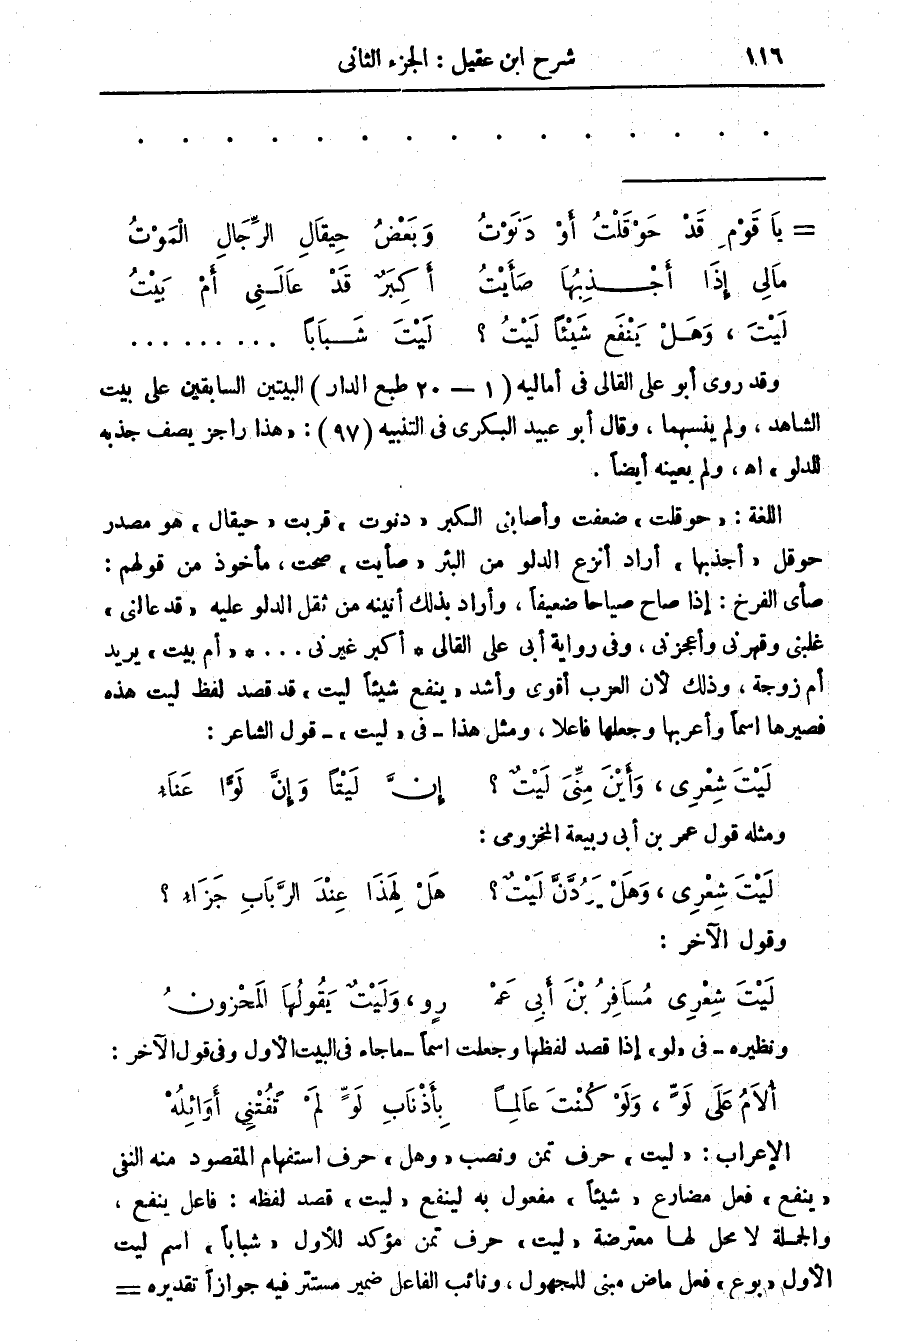 ١١٦ شرح ابن عقيل : الجزء الثانى
. . . . . . . . . . . . . . .
= يَا قَوْمِ قَدْ حَوْقَلْتُ أَوْ دَنَوْتُ وَبَعْضُ حِيقَالِ الرِّجَالِ الْمَوْتُ
مَالِى إِذَا أَجْـذِبُهَا صَأَيْتُ أَكِبَرٌ قَدْ عَالَـنِى أَمْ بَيْتُ
لَيْتَ ، وَهَـلْ يَنْفَعُ شَيْئاً لَيْتُ ؟ لَيْتَ شَـبَاباً . . . . . . . . .
وقد روى أبو على القالى فى أماليه ( ١ — ٢٠ طبع الدار ) البيتين السابقين على بيت
الشاهد ، ولم ينسبهما ، وقال أبو عبيد البـكرى فى التنبيه ( ٩٧ ) : « هذا راجز يصف جذبه
للدلو » اهـ ، ولم يعينه أيضاً .
اللغة : « حوقلت » ضعفت وأصابنى الـكبر « دنوت » قربت « حيقال » هو مصدر
حوقل « أجذبها » أراد أنزع الدلو من البئر « صأيت » صحت ، مأخوذ من قولهم :
صأى الفرخ : إذا صاح صياحا ضعيفاً ، وأراد بذلك أنينه من ثقل الدلو عليه « قد عالنى »
غلبنى وقهرنى وأعجزنى ، وفى رواية أبى على القالى * أكبر غيرنى . . . * « أم بيت » يريد
أم زوجة ، وذلك لأن العزب أقوى وأشد « ينفع شيئاً ليت » قد قصد لفظ ليت هذه
فصيرها اسماً وأعربها وجعلها فاعلا ، ومثل هذا ـ فى « ليت » ـ قول الشاعر :
لَيْتَ شِعْرِى ، وَأَيْنَ مِنِّىَ لَيْتٌ ؟ إِنَّ لَيْتاً وَإِنَّ لَوًّا عَنَاءِ
ومثله قول عمر بن أبى ربيعة المخزومى :
لَيْتَ شِعْرِى ، وَهَلْ يَرُدَّنَّ لَيْتٌ ؟ هَلْ لِهَذَا عِنْدَ الرَّبَابِ جَزَاءِ ؟
وقول الآخر :
لَيْتَ شِعْرِى مُسَافِرُ بْنَ أَبِى عَمْـ ـرٍو ، وَلَيْتٌ يَقُولُهَا الْمَحْزونُ
ونظيره ـ فى « لو » إذا قصد لفظها وجعلت اسماً ـ ماجاء فى البيت الأول وفى قول الآخر :
أُلاَمُ عَلَى لَوٍّ ، وَلَوْ كُنْتُ عَالِمـاً بِأَذْنَابِ لَوٍّ لَمْ تَفُتْنِى أَوَائِلُهْ
الإعراب : « ليت » حرف تمن ونصب « وهل » حرف استفهام المقصود منه النفى
« ينفع » فعل مضارع « شيئاً » مفعول به لينفع « ليت » قصد لفظه : فاعل ينفع ،
والجمـلة لا محل لهـا معترضة « ليت » حرف تمن مؤكد للأول « شباباً » اسم ليت
الأول « بوع » فعل ماض مبنى للمجهول ، ونائب الفاعل ضمير مستتر فيه جوازاً تقديره =